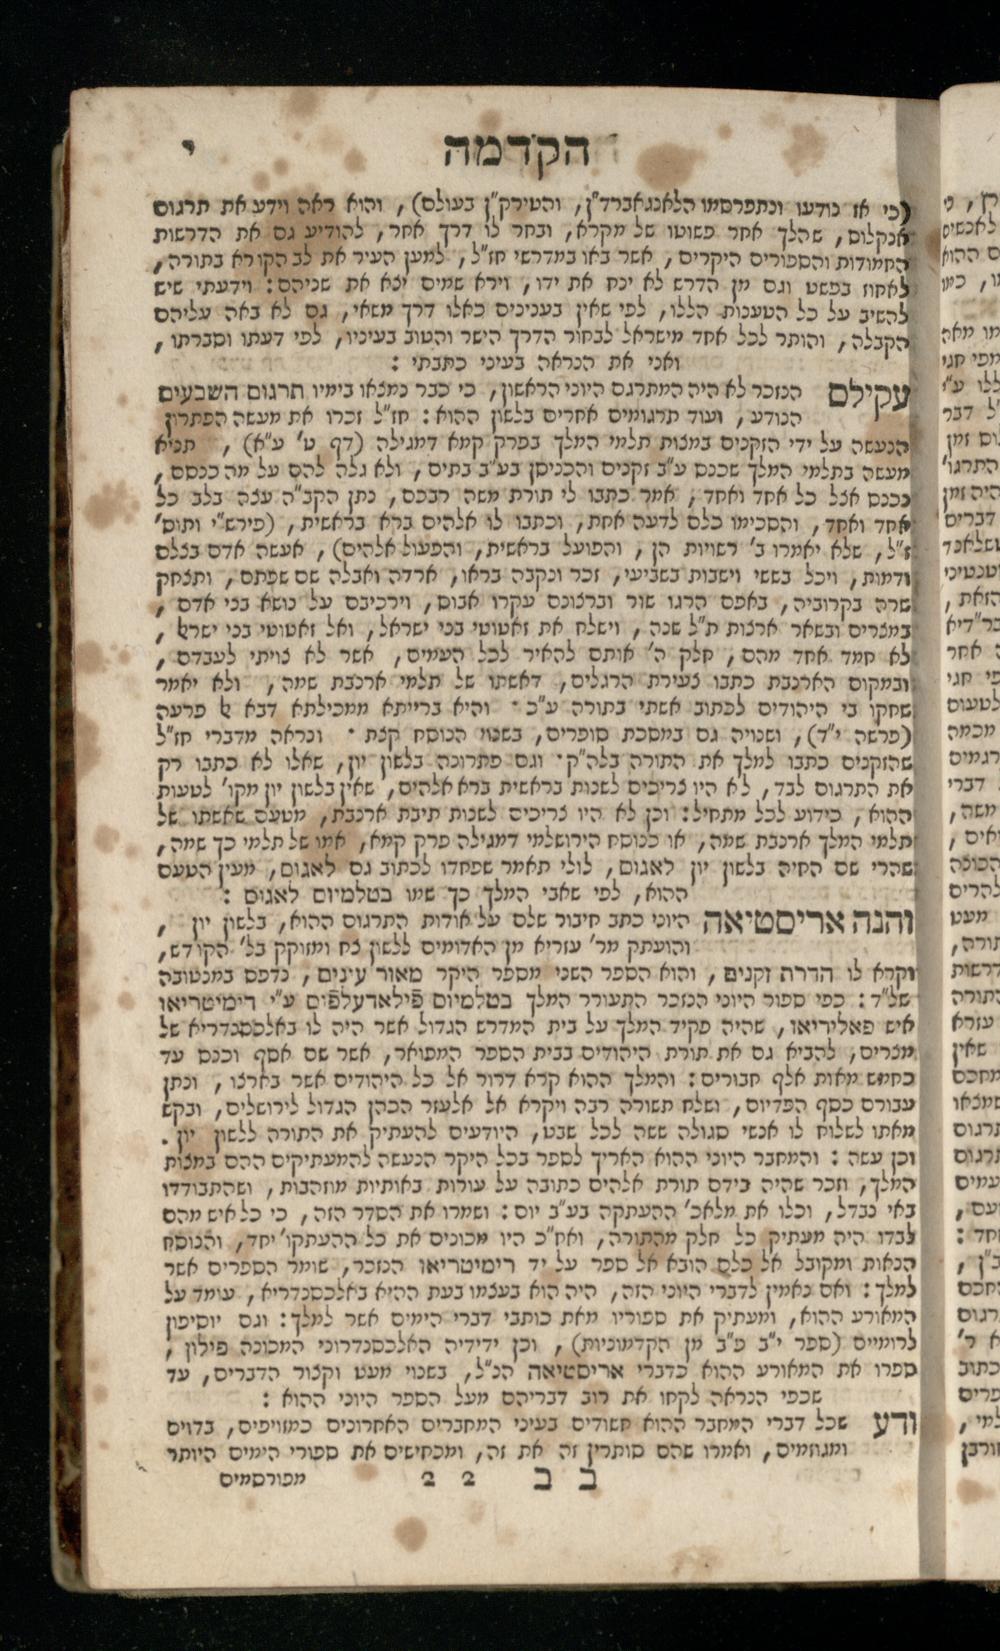 הקדמה
י
(כי אז נודעו ונתפרסמו הלאנגאברד"ן, והטירק"ן בעולם), והוא ראה וידע את תרגום
אנקלוס, שהלך אחר פשוטו של מקרא, ובחר לו דרך אחר, להודיע גם את הדרשות
החמודות והספורים היקרים, אשר באו במדרשי חז"ל, למען העיר את לב הקורא בתורה,
לאחוז בפשט וגם מן הדרש לא ינח את ידו, וירא שמים יצא את שניהם: וידעתי שיש
להשיב על כל הטענות הללו, לפי שאין בענינים כאלו דרך משאי, גם לא באה עליהם
הקבלה, והותר לכל אחד מישראל לבחור הדרך הישר והטוב בעיניו, לפי דעתו וסברתו,
ואני את הנראה בעיני כתבתי:
עקילס הנזכר לא היה המתרגם היוני הראשון, כי כבר נמצאו בימיו תרגום השבעים
הנודע, ועוד תרגומים אחרים בלשון ההוא: חז"ל זכרו את מעשה הפתרון
הנעשה על ידי הזקנים במצות תלמי המלך בפרק קמא דמגילה (דף ט' ע"א), תניא
מעשה בתלמי המלך שכנס ע"ב זקנים והכניסן בע"ב בתים, ולא גלה להם על מה כנסם,
נכנס אצל כל אחד ואחד, אמר כתבו לי תורת משה רבכם, נתן הקב"ה עצה בלב כל
אחד ואחד, והסכימו כלם לדעה אחת, וכתבו לו אלהים ברא בראשית, (פירש"י ותוס'
ז"ל, שלא יאמרו ב' רשויות הן, והפועל בראשית, והפעול אלהים), אעשה אדם בצלם
ודמות, ויכל בששי וישבות בשביעי, זכר ונקבה בראו, ארדה ואבלה שם שפתם, ותצחק
שרה בקרוביה, באפם הרגו שור וברצונם עקרו אבוס, וירכיבם על נושא בני אדם,
במצרים ובשאר ארצות ת"ל שנה, וישלח את זאטוטי בני ישראל, ואל זאטוטי בני ישראל,
לא חמד אחד מהם, חלק ה' אותם להאיר לכל העמים, אשר לא צויתי לעבדם,
ובמקום הארנבת כתבו צעירת הרגלים, דאשתו של תלמי ארנבת שמה, ולא יאמר
שחקו בי היהודים לכתוב אשתי בתורה ע"כ· והיא ברייתא ממכילתא דבא אל פרעה
(פרשה י"ד), ושנויה גם במסכת סופרים, בשנוי הנוסח קצת· ונראה מדברי חז"ל
שהזקנים כתבו למלך את התורה בלה"ק· וגם פתרונה בלשון יון, שאלו לא כתבו רק
את התרגום לבד, לא היו צריכים לשנות בראשית ברא אלהים, שאין בלשון יון מקו' לטעות
ההוא, כידוע לכל מתחיל: וכן לא היו צריכים לשנות תיבת ארנבת, מטעם שאשתו של
תלמי המלך ארנבת שמה, או כנוסח הירושלמי דמגילה פרק קמא, אמו של תלמי כך שמה,
שהרי שם החיה בלשון יון לאגוס, לולי תאמר שפחדו לכתוב גם לאגוס, מעין הטעם
ההוא, לפי שאבי המלך כך שמו בטלמיוס לאגוס:
והנה אריסטיאה היוני כתב חיבור שלם על אודות התרגום ההוא, בלשון יון,
והועתק מר' עזריא מן האדומים ללשון צח ומזוקק בל' הקודש,
וקרא לו הדרת זקנים, והוא הספר השני מספר היקר מאור עינים, נדפס במנטובה
של"ד: כפי ספור היוני הנזכר התעורר המלך בטלמיוס פילאדעלפוס ע"י דימיטריאו
איש פאליריאו, שהיה פקיד המלך על בית המדרש הגדול אשר היה לו באלכסנדריא של
מצרים, להביא גם את תורת היהודים בבית הספר המפואר, אשר שם אסף וכנס עד
כחמש מאות אלף חבורים: והמלך ההוא קרא דרור אל כל היהודים אשר בארצו, ונתן
עבורם כסף הפדיום, ושלח תשורה רבה ויקרא אל אלעזר הכהן הגדול לירושלים, ובקש
מאתו לשלוח לו אנשי סגולה ששה לכל שבט, היודעים להעתיק את התורה ללשון יון.
וכן עשה: והמחבר היוני ההוא האריך לספר בכל היקר הנעשה להמעתיקים ההם במצות
המלך, וזכר שהיה בידם תורת אלהים כתובה על עורות באותיות מוזהבות, ושהתבודדו
באי נבדל, וכלו את מלאכ' ההעתקה בע"ב יום: ושמרו את הסדר הזה, כי כל איש מהם
לבדו היה מעתיק כל חלק מהתורה, ואח"כ היו מכונים את כל ההעתקו' יחד, והנוסח
הנאות ומקובל אל כלם הובא אל ספר על יד דימיטריאו הנזכר, שומר הספרים אשר
למלך: ואם נאמין לדברי היוני הזה, היה הוא בעצמו בעת ההיא באלכסנדריא, עומד על
המאורע ההוא, ומעתיק את ספוריו מאת כותבי דברי הימים אשר למלך: וגם יוסיפון
לרומיים (ספר י"ב פ"ב מן הקדמוניות), וכן ידידיה האלכסנדרוני המכונה פילון,
ספרו את המאורע ההוא כדברי אריסטיאה הנ"ל, בשנוי מעט וקצור הדברים, עד
שכפי הנראה לקחו את רוב דבריהם מעל הספר היוני ההוא:
ודע שכל דברי המחבר ההוא חשודים בעיני המחברים האחרונים כמזויפים, בדוים
ומגוזמים, ואמרו שהם סותרין זה את זה, ומכחישים את ספורי הימים היותר
ב ב 2 2 מפורסמים